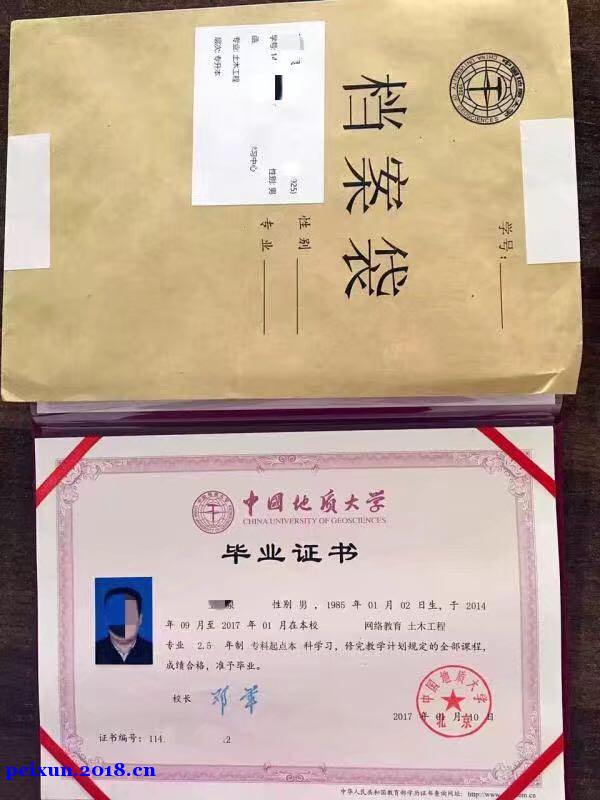 档案袋
中国地质大学
CHINA UNIVERSITY OF GEOSCIENCES
学号：
性别
专业
学号: 1
函
专业: 土木工程
层次: 专升本
925)
性别: 男
习中心
中国地质大学
CHINA UNIVERSITY OF GEOSCIENCES
毕业证书
性别 男 ，1985 年 01 月 02 日生，于 2014
年 09 月至 2017 年 01 月在本校 网络教育 土木工程
专业 2.5 年制 专科起点本 科学习，修完教学计划规定的全部课程，
成绩合格，准予毕业。
校长 邓军
中国地质大学
北京
2017 年 01 月 10 日
证书编号：114 2
中华人民共和国教育部学历证书查询网址：http://www. .com.cn
peixun.2018.cn